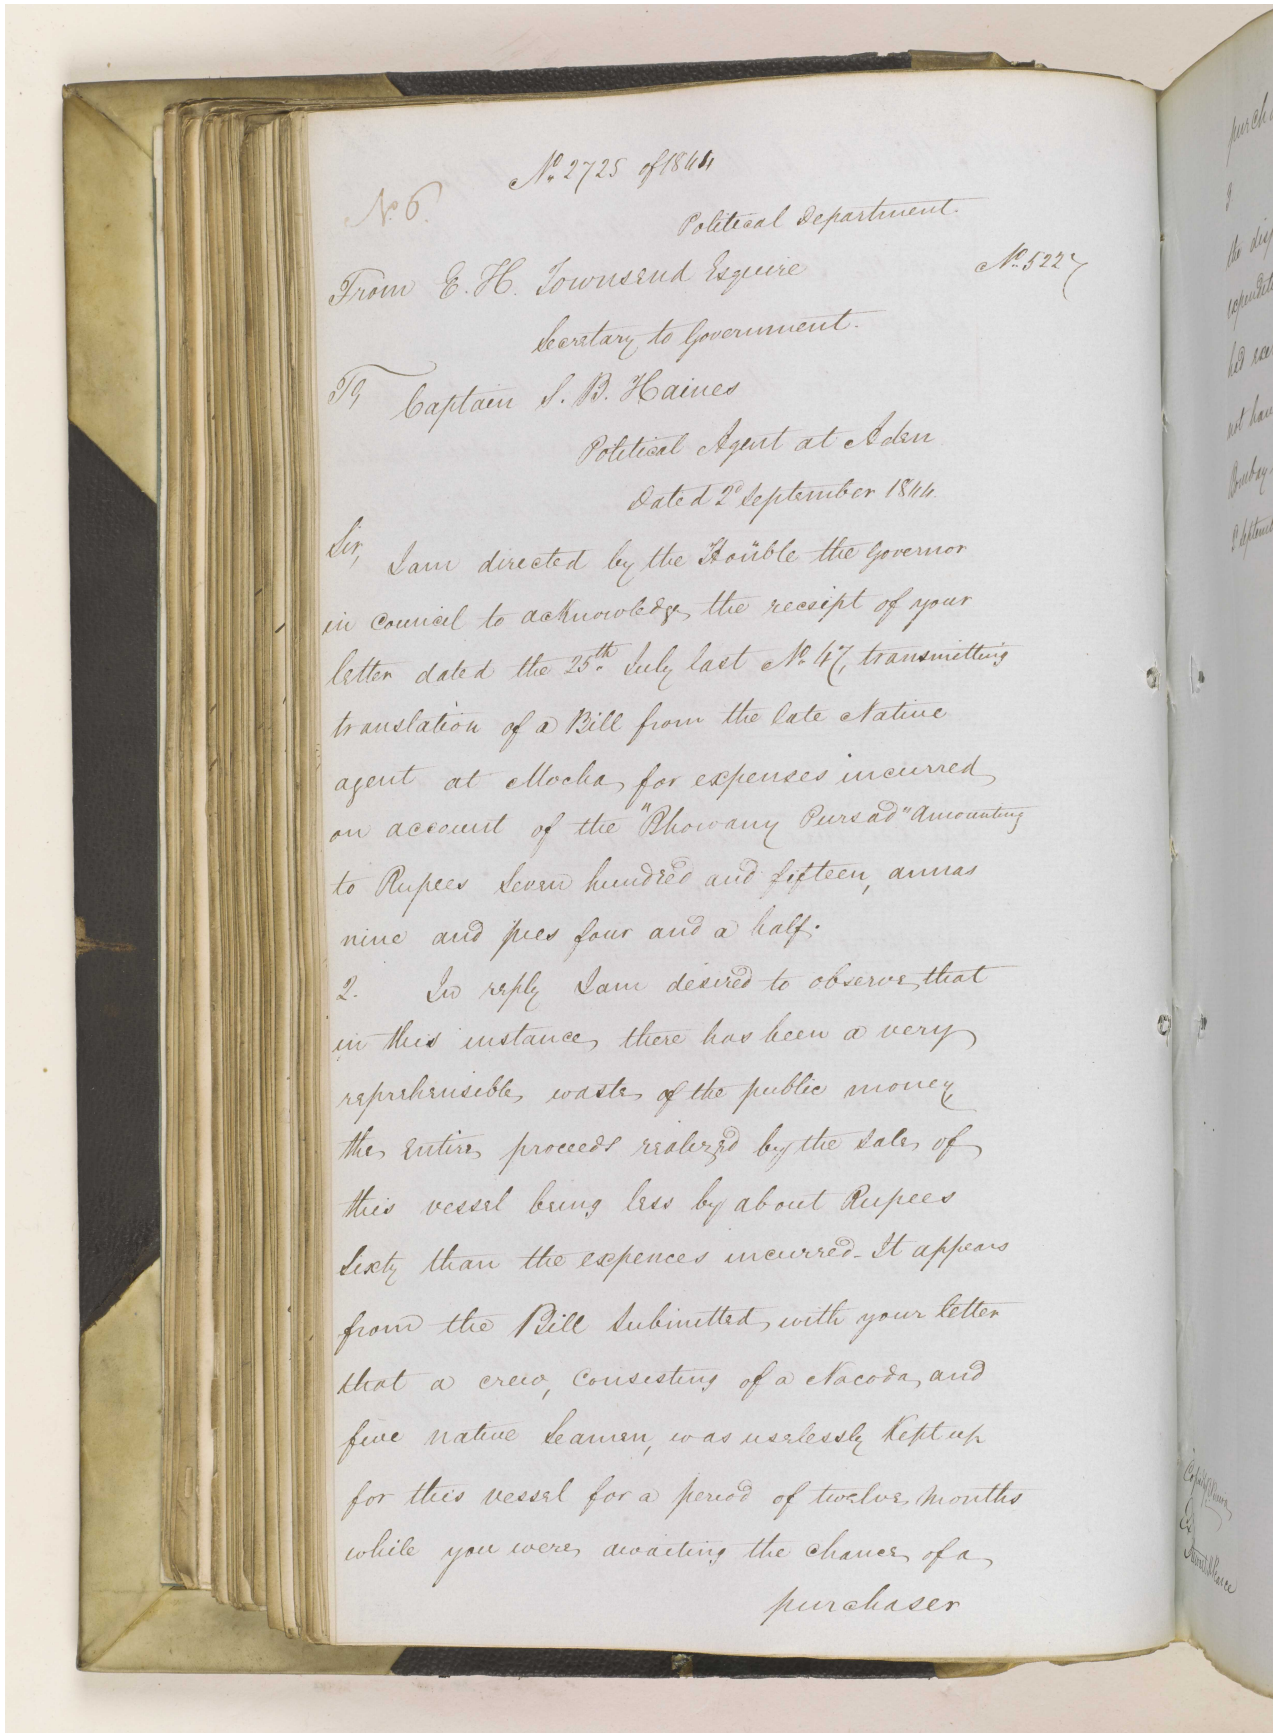 No. 2725 of 1844
No. 6.
Political Department.
From E. H. Townsend Esquire
No. 5227
Secretary to Government.
To Captain S. B. Haines
Political Agent at Aden
Dated 2d September 1844.
Sir,
I am directed by the Honble the Governor
in Council to acknowledge the receipt of your
letter dated the 25th July last No. 47, transmitting
translation of a Bill from the late Native
agent at Mocha for expenses incurred
on account of the "Bhowany Pursad" Amounting
to Rupees Seven hundred and fifteen, annas
nine and pies four and a half.
2. In reply I am desired to observe that
in this instance there has been a very
reprehensible waste of the public money
the entire proceeds realized by the Sale of
this vessel being less by about Rupees
Sixty than the expences incurred - It appears
from the Bill Submitted with your letter
that a crew, Consisting of a Nacoda and
five native Seamen, was uselessly Kept up
for this vessel for a period of twelve months
while you were awaiting the chance of a
purchaser